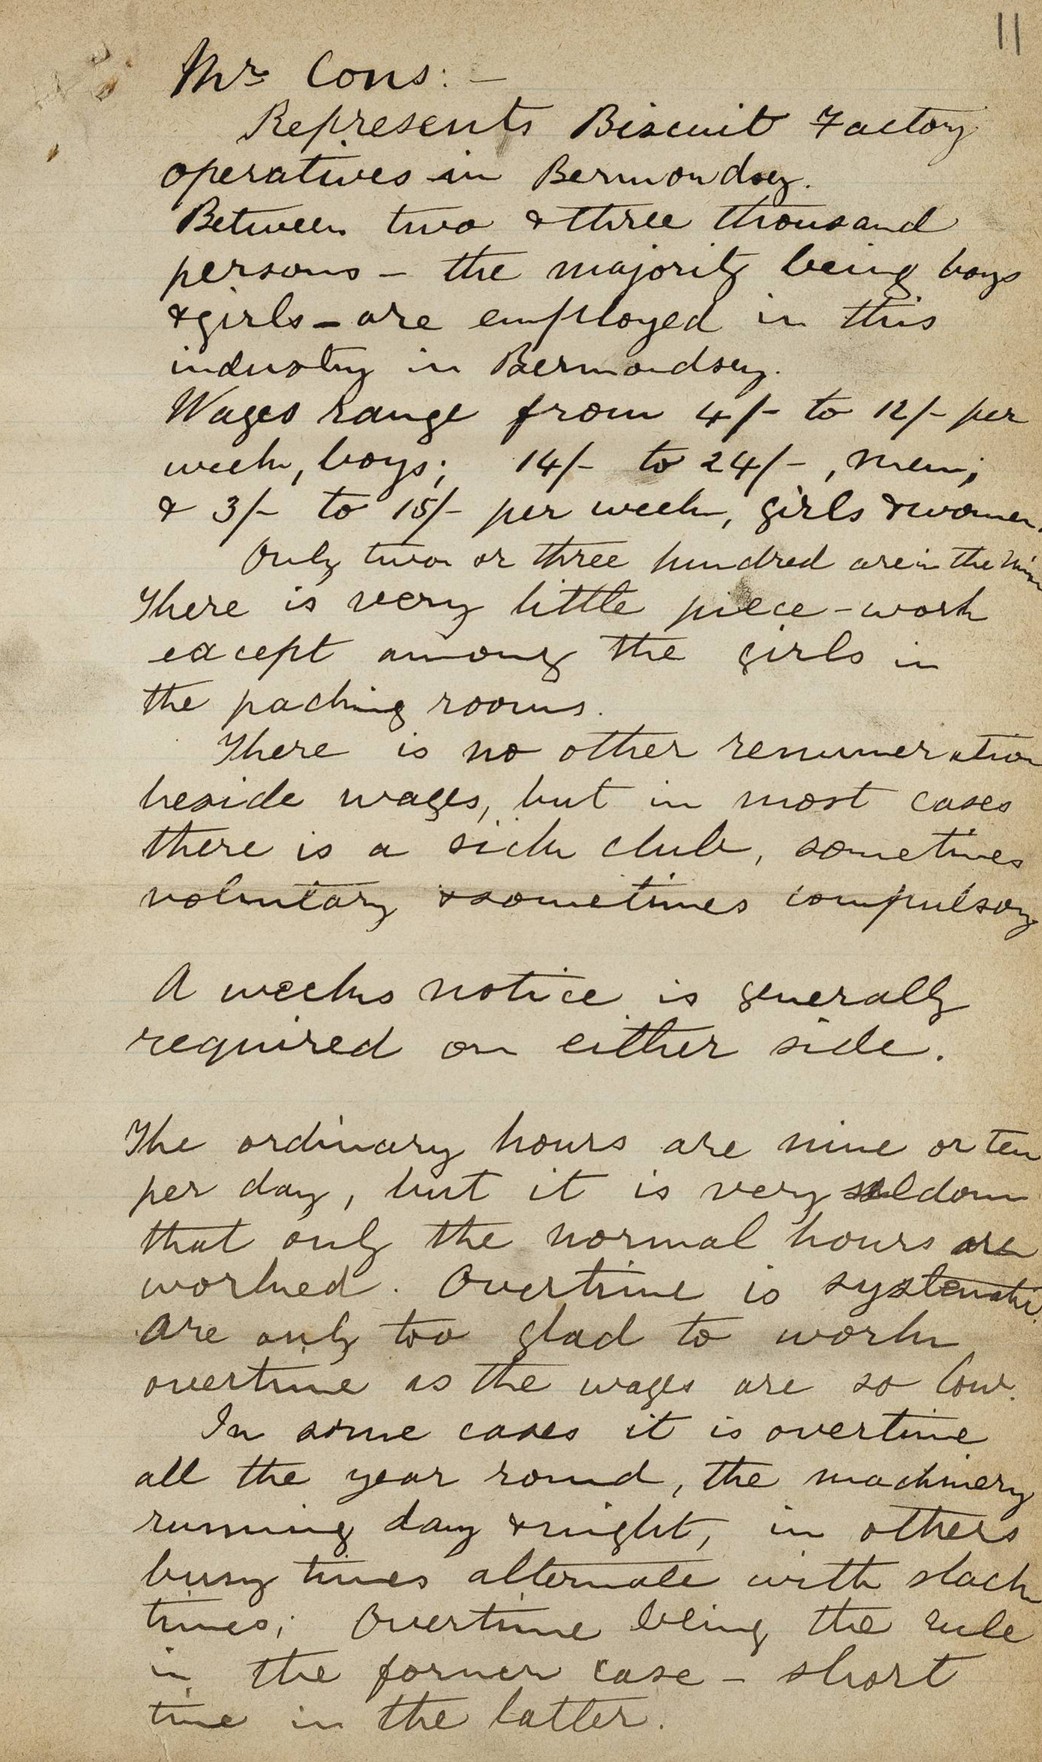 11
Mr Cons: -
Represents Biscuit Factory
operatives in Bermondsey.
Between two & three thousand
persons - the majority being boys
& girls - are employed in this
industry in Bermondsey.
Wages range from 4/- to 12/- per
week, boys; 14/- to 24/-, men;
& 3/- to 15/- per week, girls & women.
Only two or three hundred are in the
There is very little piece-work
except among the girls in
the packing rooms.
There is no other renumeration
beside wages, but in most cases
there is a sick club, sometimes
voluntary & sometimes compulsory
A weeks notice is generally
required on either side.
The ordinary hours are nine or ten
per day, but it is very seldom
that only the normal hours are
worked. Overtime is systematic.
Are only too glad to work
overtime as the wages are so low.
In some cases it is overtime
all the year round, the machinery
running day & night, in others
busy times alternate with slack
times; Overtime being the rule
in the former case - short
time in the latter.